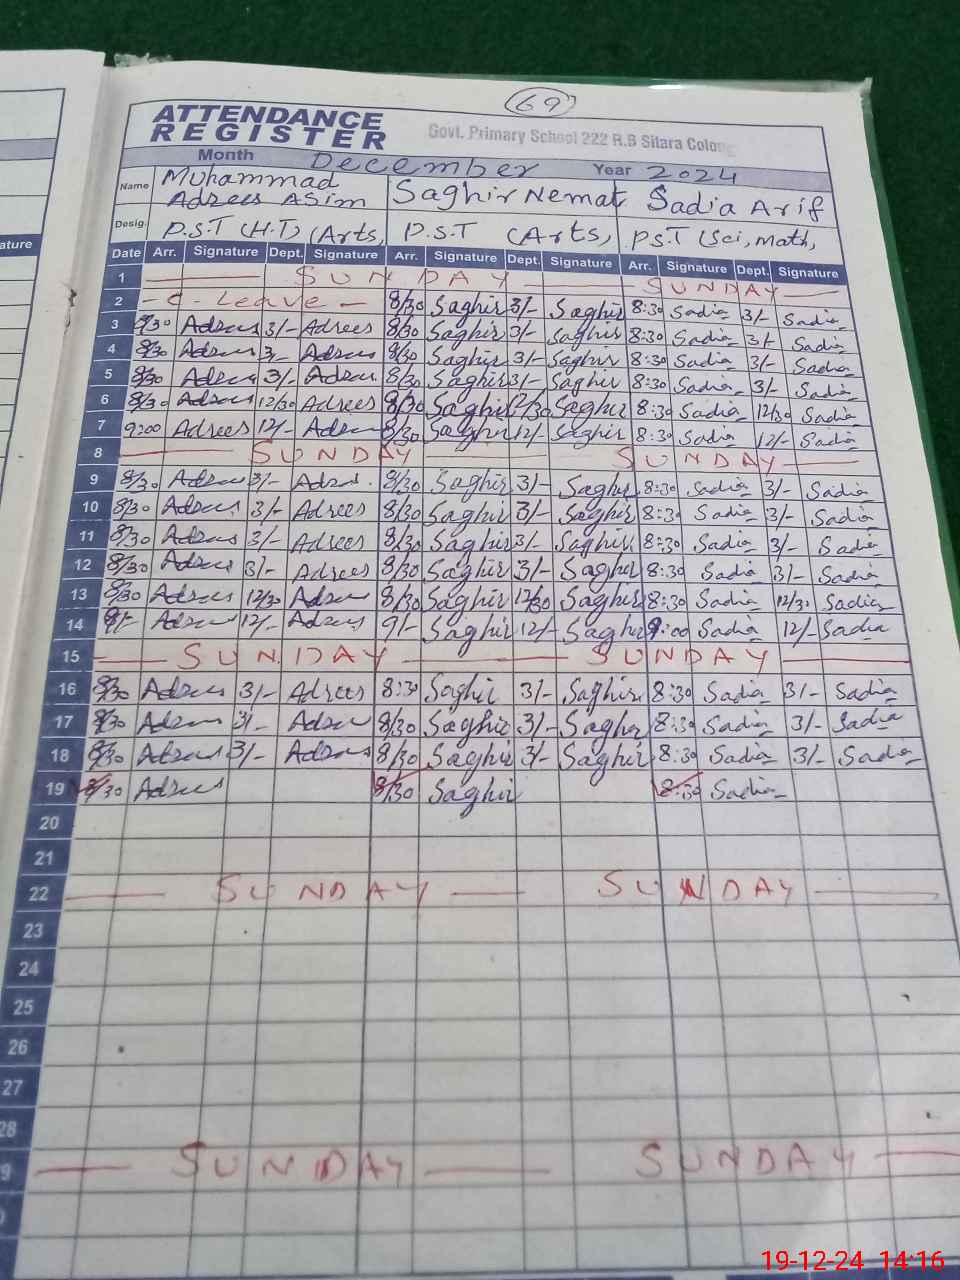 69
ATTENDANCE
REGISTER
Govt. Primary School 222 R.B Sitara Colony
Month December Year 2024
Name Muhammad Adrees Asim Saghir Nemat Sadia Arif
Desig. P.S.T (H.T) (Arts, P.S.T (Arts, P.S.T (Sci, math,
Date Arr. Signature Dept. Signature Arr. Signature Dept. Signature Arr. Signature Dept. Signature
1 SUNDAY SUNDAY
2 - C. Leave - 8/30 Saghir 3/- Saghir 8:30 Sadia 3/- Sadia
3 8/30 Adrees 3/- Adrees 8/30 Saghir 3/- Saghir 8:30 Sadia 3/- Sadia
4 8/30 Adrees 3/- Adrees 8/30 Saghir 3/- Saghir 8:30 Sadia 3/- Sadia
5 8/30 Adrees 3/- Adrees 8/30 Saghir 3/- Saghir 8:30 Sadia 3/- Sadia
6 8/30 Adrees 12/30 Adrees 8/30 Saghir 12/30 Saghir 8:30 Sadia 12/30 Sadia
7 9:00 Adrees 12/- Adrees 8/30 Saghir 12/- Saghir 8:30 Sadia 12/- Sadia
8 SUNDAY SUNDAY
9 8/30 Adrees 3/- Adrees 8/30 Saghir 3/- Saghir 8:30 Sadia 3/- Sadia
10 8/30 Adrees 3/- Adrees 8/30 Saghir 3/- Saghir 8:30 Sadia 3/- Sadia
11 8/30 Adrees 3/- Adrees 8/30 Saghir 3/- Saghir 8:30 Sadia 3/- Sadia
12 8/30 Adrees 3/- Adrees 8/30 Saghir 3/- Saghir 8:30 Sadia 3/- Sadia
13 8/30 Adrees 12/30 Adrees 8/30 Saghir 12/30 Saghir 8:30 Sadia 12/30 Sadia
14 9/- Adrees 12/- Adrees 9/- Saghir 12/- Saghir 9:00 Sadia 12/- Sadia
15 SUNDAY SUNDAY
16 8/30 Adrees 3/- Adrees 8:30 Saghir 3/- Saghir 8:30 Sadia 3/- Sadia
17 8/30 Adrees 3/- Adrees 8/30 Saghir 3/- Saghir 8:30 Sadia 3/- Sadia
18 8/30 Adrees 3/- Adrees 8/30 Saghir 3/- Saghir 8:30 Sadia 3/- Sadia
19 8/30 Adrees 8/30 Saghir 8:30 Sadia
20
21
22 SUNDAY SUNDAY
23
24
25
26
27
28
SUNDAY SUNDAY
19-12-24 14:16